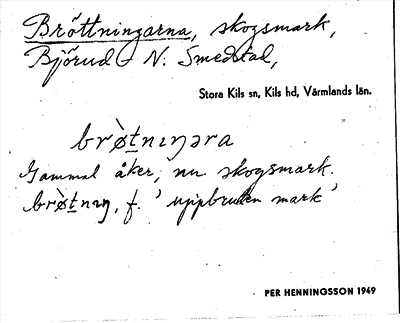 Bröttningarna, skogsmark,
Björud - N. Smedstad,
Stora Kils sn, Kils hd, Värmlands län.
brø̀tnıŋara
Gammal åker, nu skogsmark.
brø̀tnıŋ, f. 'uppbruten mark'
PER HENNINGSSON 1949